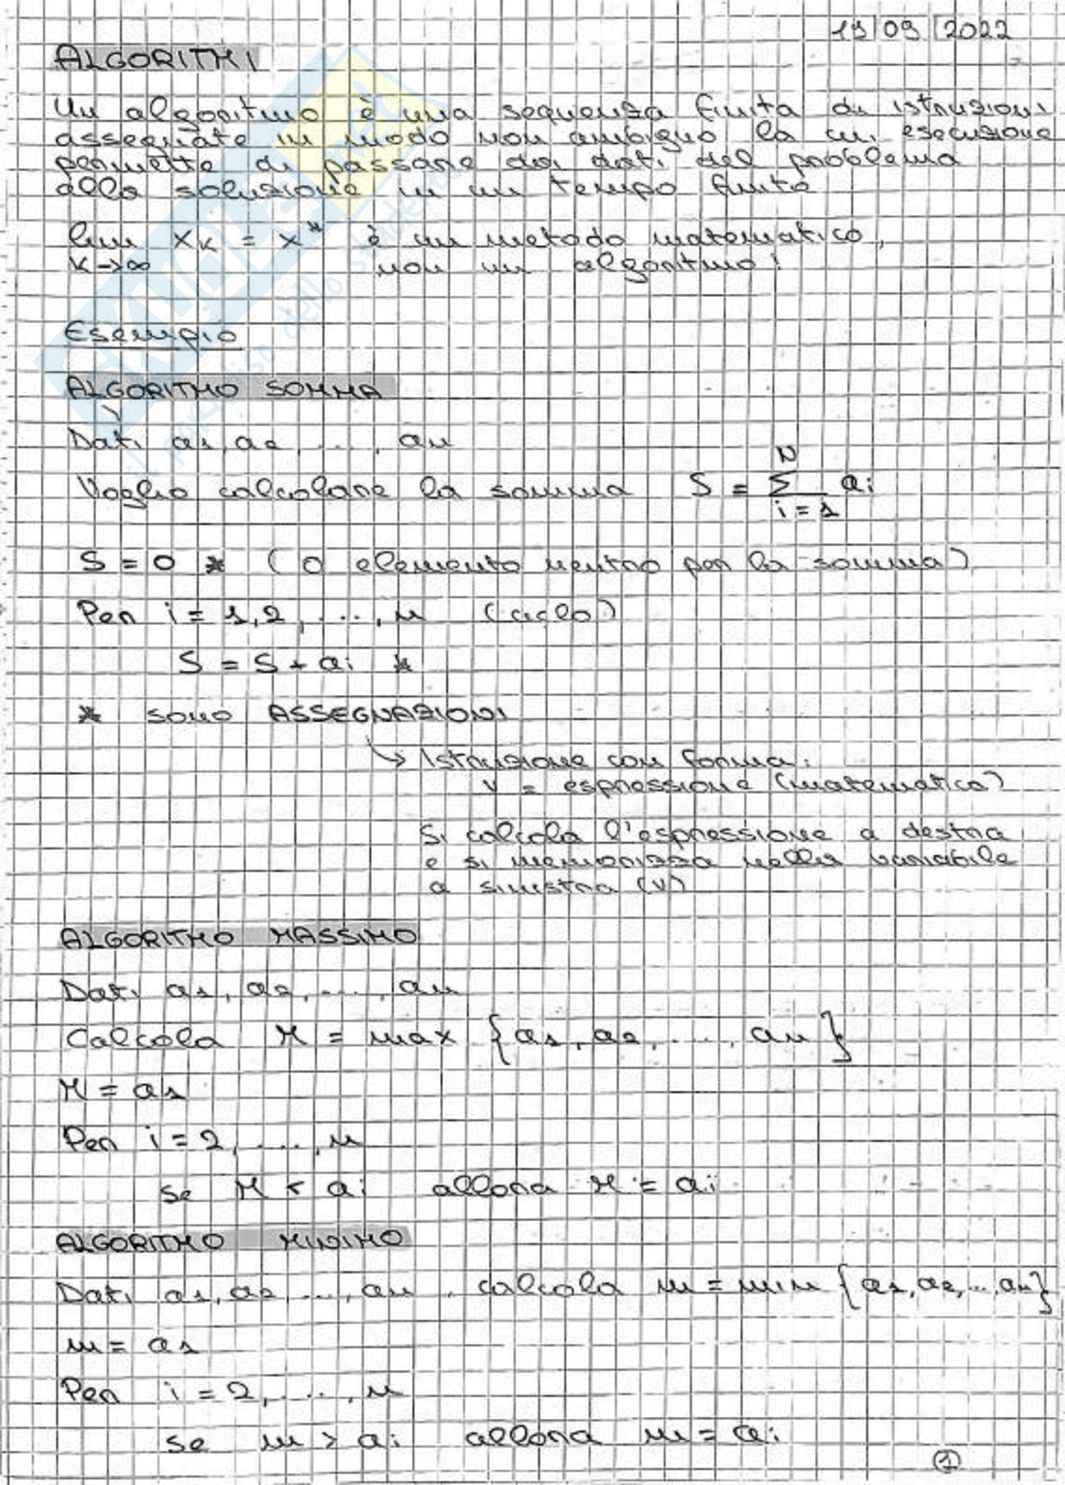 19/09/2022
ALGORITMI
Un algoritmo è una sequenza finita di istruzioni
assegnate in modo non ambiguo la cui esecuzione
permette di passare dai dati del problema
alla soluzione in un tempo finito
lim xk = x* è un metodo matematico,
k→∞ non un algoritmo!
Esempio
ALGORITMO SOMMA
Dati a1, a2, ..., an
Voglio calcolare la somma S = N Σ i=1 ai
S = 0 * (0 elemento neutro per la somma)
Per i = 1, 2, ..., n (ciclo)
S = S + ai *
* sono ASSEGNAZIONI
↳ Istruzione con forma:
v = espressione (matematica)
Si calcola l'espressione a destra
e si memorizza nella variabile
a sinistra (v)
ALGORITMO MASSIMO
Dati a1, a2, ..., an
Calcola M = max {a1, a2, ..., an}
M = a1
Per i = 2, ..., n
se M < ai allora M = ai
ALGORITMO MINIMO
Dati a1, a2, ..., an, calcola m = min {a1, a2, ..., an}
m = a1
Per i = 2, ..., n
se m > ai allora m = ai
1